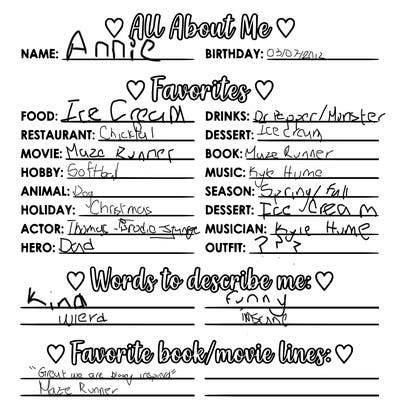 ♡ All About Me ♡
NAME: Annie BIRTHDAY: 03/07/2012
♡ Favorites ♡
FOOD: Ice Cream DRINKS: Dr pepper/Monster
RESTAURANT: Chickfal DESSERT: Ice cream
MOVIE: Maze Runner BOOK: Maze Runner
HOBBY: Softball MUSIC: Kyle Hume
ANIMAL: Dog SEASON: Spring/Fall
HOLIDAY: Christmas DESSERT: Ice Cream
ACTOR: Thomas-Brodie-Sangster MUSICIAN: Kyle Hume
HERO: Dad OUTFIT: ? ? ?
♡ Words to describe me: ♡
Kind Funny
Wierd insane
♡ Favorite book/movie lines: ♡
"Great we are bloody inspired"
Maze Runner